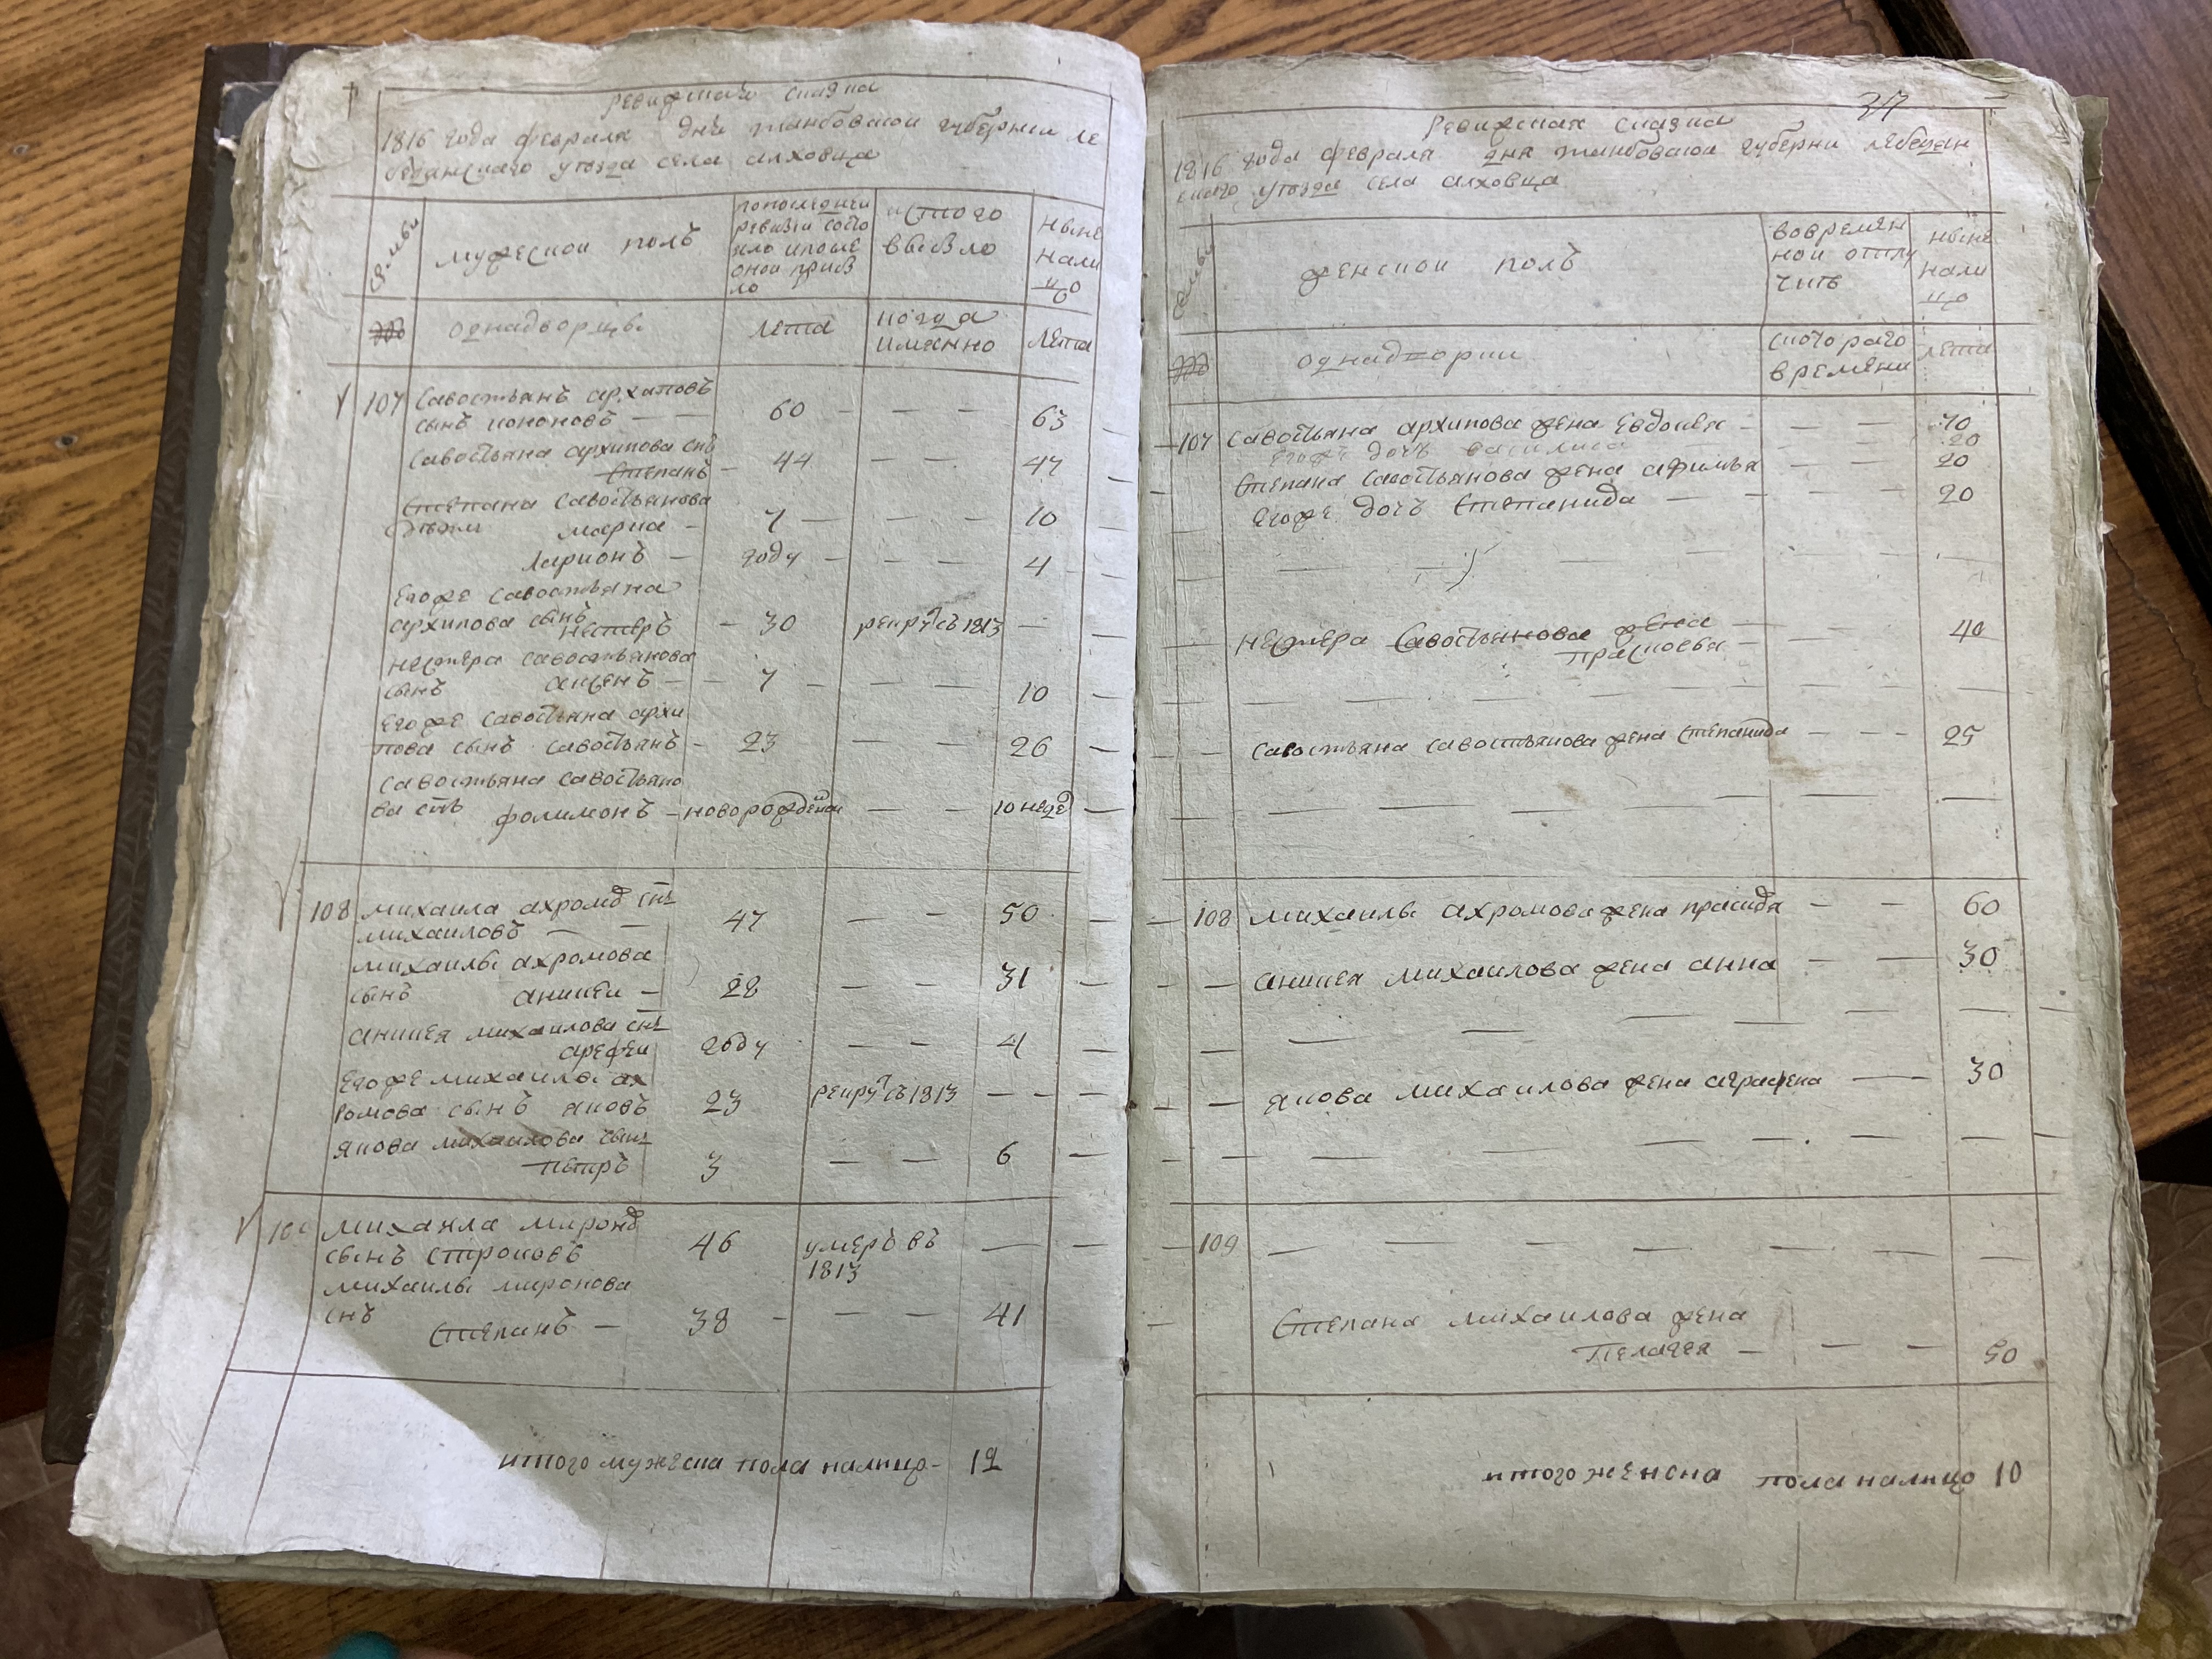 ревижская сказка
1816 года февраля дня танбовской губернии ле
бедянскаго уезда села алховца
семьи
мужеской полъ
попоследнеи
ревизи состо
яло ипосле
онои прибы
ло
истого
выбыло
ныне
нали
цо
однадворцы
лета
когда
имянно
лета
107 Савостьянъ архиповъ
сынъ кононовъ — — 60 — — — 63
Савостьяна архипова снъ
Степанъ — 44 — — 47
Степана Савостьянова
дети марка — 7 — — — 10
Ларионъ — году — — — 4
Егоже Савостьяна
архипова сынъ
нестеръ — 30 рекрутъ съ 1813 —
нестера савостьянова
сынъ аксенъ — — 7 — — — 10
Егоже Савостьяна архи
пова сынъ савостьянъ — 23 — — 26 —
Савостьяна Савостьяно
ва снъ филимонъ — новорожденои — — 10 недѣ —
108 михаила ахромъ снъ
михаиловъ — — 47 — — 50 —
михаилы ахромова
сынъ аникеи — 28 — — 31 —
аникея михаилова снъ
арефеи году — — 4 —
Егоже михаилы ах
ромова сынъ яковъ 23 рекрутъ съ 1813 — — —
якова михаилова сынъ
петръ 3 — — 6 —
михаила миронъ
сынъ строковъ 46 умеръ въ — —
1813
михаилы миронова
снъ
Степанъ — 38 — — — 41
итого мужеска пола налицо — 12
317
Ревижская сказка
1816 года февраля дня танбовской губерни лебедян
скаго уезда села алховца
семьи
женскои полъ
вовремян
нои отлу
чить
ныне
нали
цо
однадворки
скоторого
времяни
лета
107 Савостьяна архипова жена Евдокея — — — 70
Егоже дочь василиса 20
Степана Савостьянова жена афимья — — 20
Егоже дочь Степанида — — — — 20
нестера Савостьянова жена —
прасковья — — — 40
Савостьяна савостьянова жена Степанида — — — 25
108 михаилы ахромова жена праскида — — 60
аникея михаилова жена анна — — 30
якова михаилова жена аграфена — — 30
109 — — — — — — —
Степана михаилова жена
Пелагея — — — 50
итого женска пола налицо 10